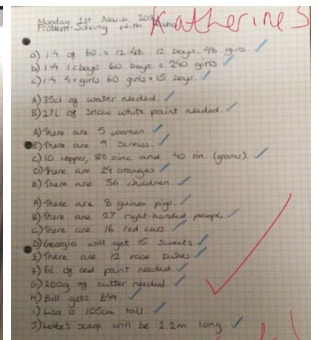 Monday 1st March
Katherine S
Problem-Solving with
a) 1:4 of 60 = 12:48. 12 boys, 48 girls
b) 1:4 1=boys 60 boys = 240 girls
c) 1:4 4=girls 60 girls = 15 boys.
A) 35cl of water needed.
B) 27L of snow white paint needed.
A) There are 5 women.
B) There are 9 screws.
C) 10 copper, 80 zinc and 40 tin. (grams)
D) There are 24 oranges
E) There are 36 children.
A) There are 8 guinea pigs.
B) There are 27 right-handed people.
C) There are 16 red cars.
D) Georgia will get 15 sweets.
E) There are 12 rose bushes
F) 6L of red paint needed.
G) 200g of butter needed.
H) Bill gets
I) Lisa is 105cm tall.
J) Lotte's scarf will be 2.2m long.